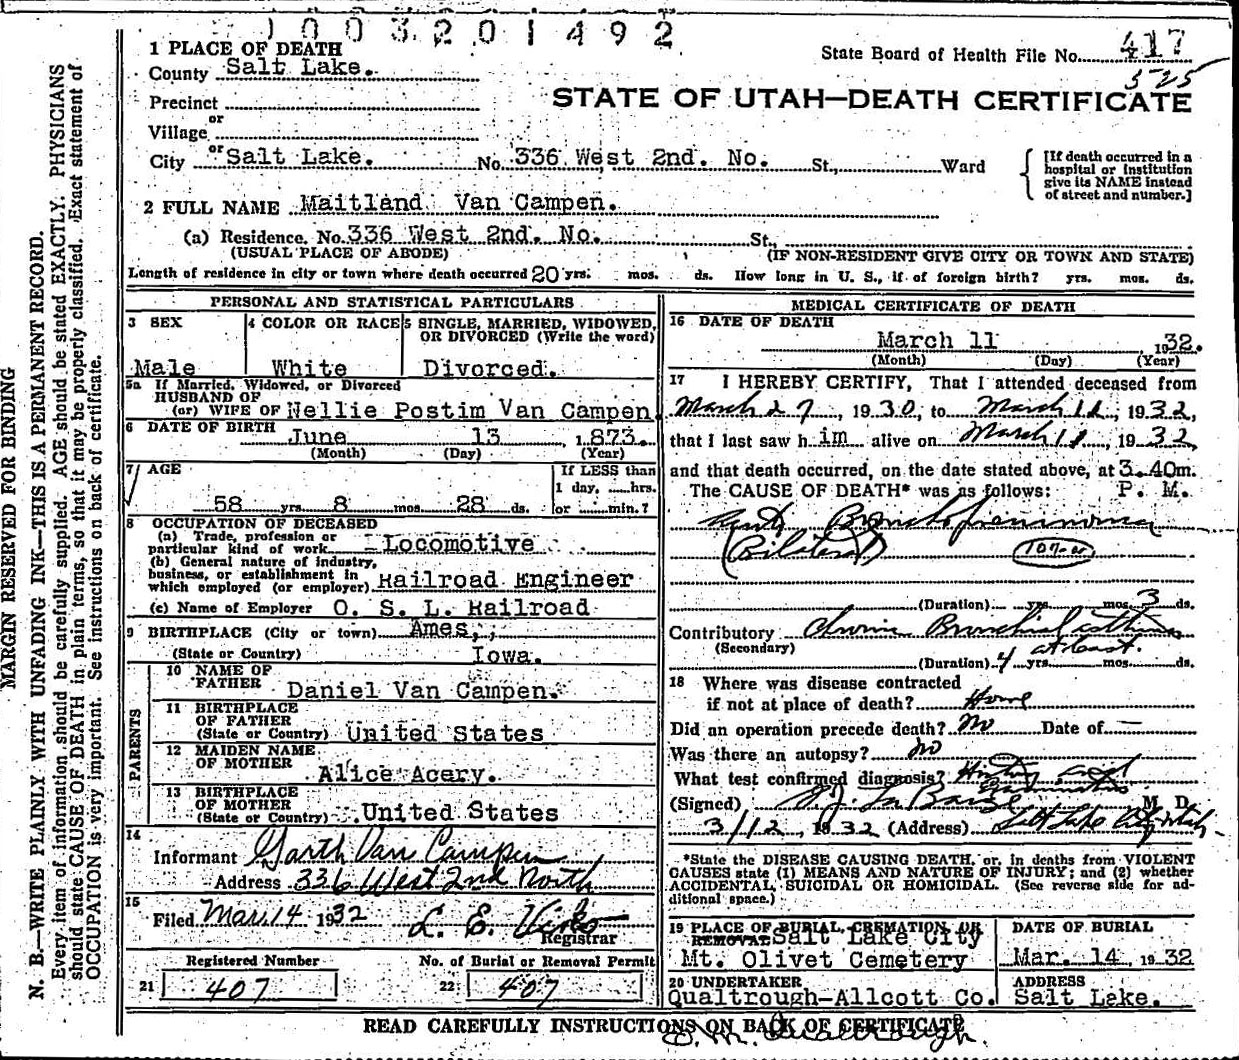 1003201492
State Board of Health File No. 417
525
STATE OF UTAH—DEATH CERTIFICATE
1 PLACE OF DEATH
County Salt Lake.
Precinct
or
Village
or
City Salt Lake. No. 336 West 2nd. No. St., Ward
[If death occurred in a hospital or institution give its NAME instead of street and number.]
2 FULL NAME Maitland Van Campen.
(a) Residence. No. 336 West 2nd. No. St.,
(USUAL PLACE OF ABODE) (IF NON-RESIDENT GIVE CITY OR TOWN AND STATE)
Length of residence in city or town where death occurred 20 yrs. mos. ds. How long in U. S., if of foreign birth? yrs. mos. ds.
PERSONAL AND STATISTICAL PARTICULARS
3 SEX
Male
4 COLOR OR RACE
White
5 SINGLE, MARRIED, WIDOWED, OR DIVORCED (Write the word)
Divorced.
5a If Married, Widowed, or Divorced
HUSBAND OF
(or) WIFE OF Nellie Postim Van Campen
6 DATE OF BIRTH June 13 1873.
(Month) (Day) (Year)
7 AGE
58 yrs. 8 mos. 28 ds.
If LESS than
1 day, ......hrs.
or ......min.?
8 OCCUPATION OF DECEASED
(a) Trade, profession or
particular kind of work Locomotive
(b) General nature of industry,
business, or establishment in
which employed (or employer) Railroad Engineer
(c) Name of Employer O. S. L. Railroad
9 BIRTHPLACE (City or town) Ames,
(State or Country) Iowa.
PARENTS
10 NAME OF
FATHER Daniel Van Campen.
11 BIRTHPLACE
OF FATHER
(State or Country) United States
12 MAIDEN NAME
OF MOTHER Alice Acary.
13 BIRTHPLACE
OF MOTHER
(State or Country) United States
14
Informant Garth Van Campen
Address 336 West 2nd North
15
Filed Mar. 14 1932 L. E.
Registrar
Registered Number
21 407
No. of Burial or Removal Permit
22 407
MEDICAL CERTIFICATE OF DEATH
16 DATE OF DEATH
March 11 1932.
(Month) (Day) (Year)
17 I HEREBY CERTIFY, That I attended deceased from
March 27, 1930, to March 11, 1932,
that I last saw him alive on March 11, 1932
and that death occurred, on the date stated above, at 3.40m.
The CAUSE OF DEATH* was as follows: P. M.
Bronchopneumonia
(Bilateral) 107-a
(Duration) yrs. mos. 3 ds.
Contributory Chronic Bronchial asthma
(Secondary) at least.
(Duration) 4 yrs. mos. ds.
18 Where was disease contracted
if not at place of death? Home
Did an operation precede death? No Date of —
Was there an autopsy? No
What test confirmed diagnosis? History and
Examination
(Signed) La Barge M. D.
3/12, 1932 (Address) Salt Lake City Utah
*State the DISEASE CAUSING DEATH, or, in deaths from VIOLENT
CAUSES state (1) MEANS AND NATURE OF INJURY; and (2) whether
ACCIDENTAL, SUICIDAL OR HOMICIDAL. (See reverse side for ad-
ditional space.)
19 PLACE OF BURIAL, CREMATION, OR
REMOVAL Salt Lake City
Mt. Olivet Cemetery
DATE OF BURIAL
Mar. 14, 1932
20 UNDERTAKER
Qualtrough-Allcott Co.
ADDRESS
Salt Lake.
READ CAREFULLY INSTRUCTIONS ON BACK OF CERTIFICATE
Qualtrough.
MARGIN RESERVED FOR BINDING
N. B.—WRITE PLAINLY WITH UNFADING INK—THIS IS A PERMANENT RECORD.
Every item of information should be carefully supplied. AGE should be stated EXACTLY. PHYSICIANS
should state CAUSE OF DEATH in plain terms, so that it may be properly classified. Exact statement of
OCCUPATION is very important. See instructions on back of certificate.